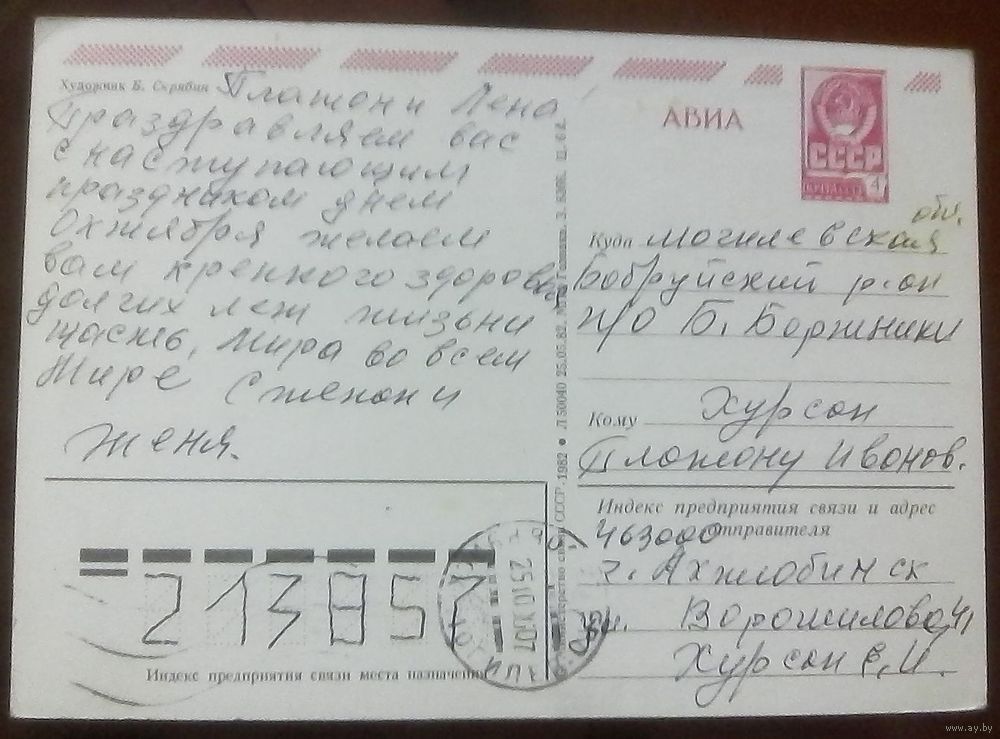 Художник Б. Скрябин
Платон и Лена!
Праздравляем вас
с наступающим
праздником днем
Октября желаем
вам крепкого здоровья
долгих лет жизьни
щастя, Мира во всем
Мире Степан и
Женя.
АВИА
СССР
ПОЧТА
4
Куда Могилевская обл.
Бобруйский р-он
п/о Б. Бортники
Кому Хурсан
Платону Иванов.
Индекс предприятия связи и адрес
отправителя
463000
г. Актюбинск
ул. Ворошилова, 41
Хурсан С, И.
213857
Индекс предприятия связи места назначения
Министерство связи СССР. 1982 ● Л 50040 25.05.82.
25.10
www.ay.by